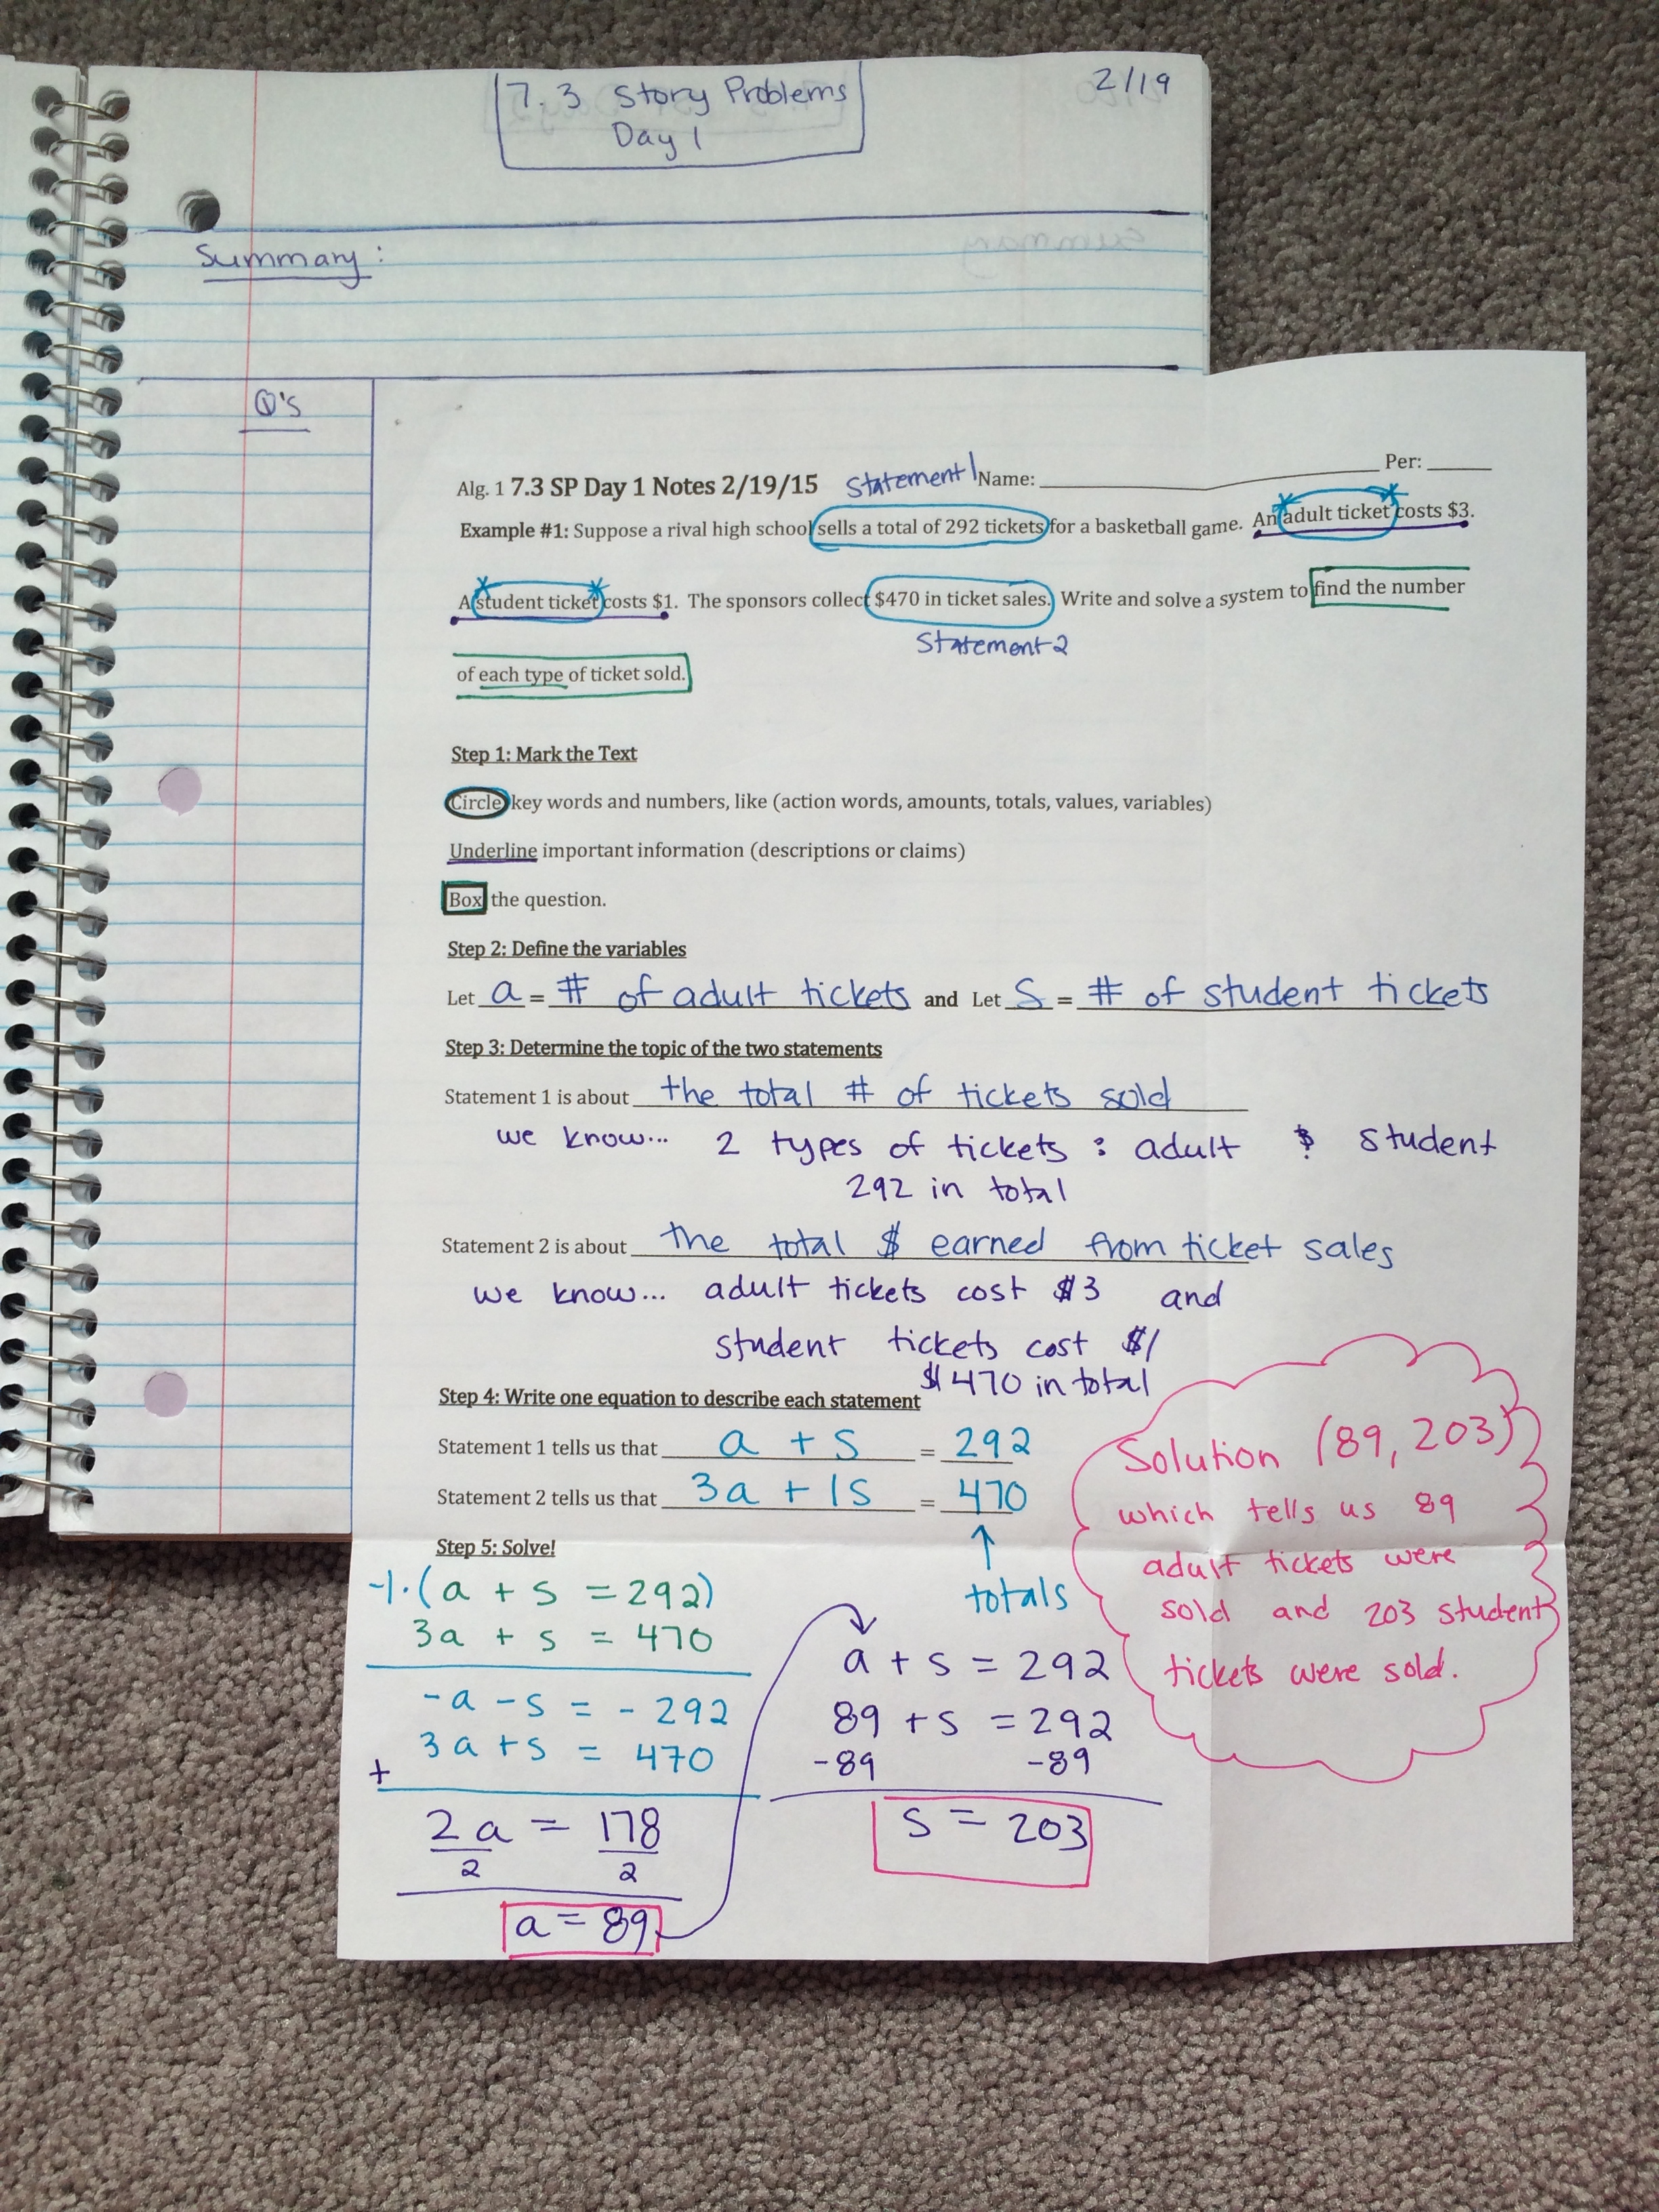 7.3 Story Problems
Day 1
2/19
Summary:
Q's
Alg. 1 7.3 SP Day 1 Notes 2/19/15 Statement 1 Name: Per:
Example #1: Suppose a rival high school sells a total of 292 tickets for a basketball game. An adult ticket costs $3.
A student ticket costs $1. The sponsors collect $470 in ticket sales. Write and solve a system to find the number
Statement 2
of each type of ticket sold.
Step 1: Mark the Text
Circle key words and numbers, like (action words, amounts, totals, values, variables)
Underline important information (descriptions or claims)
Box the question.
Step 2: Define the variables
Let a = # of adult tickets and Let s = # of student tickets
Step 3: Determine the topic of the two statements
Statement 1 is about the total # of tickets sold
we know... 2 types of tickets : adult & student
292 in total
Statement 2 is about the total $ earned from ticket sales
we know... adult tickets cost $3 and
student tickets cost $1
$470 in total
Step 4: Write one equation to describe each statement
Statement 1 tells us that a + s = 292
Statement 2 tells us that 3a + 1s = 470
totals
Step 5: Solve!
-1·(a + s = 292)
3a + s = 470
-a - s = - 292
+ 3a + s = 470
2a = 178
2 2
a = 89
a + s = 292
89 + s = 292
-89 -89
s = 203
Solution (89, 203)
which tells us 89
adult tickets were
sold and 203 student
tickets were sold.